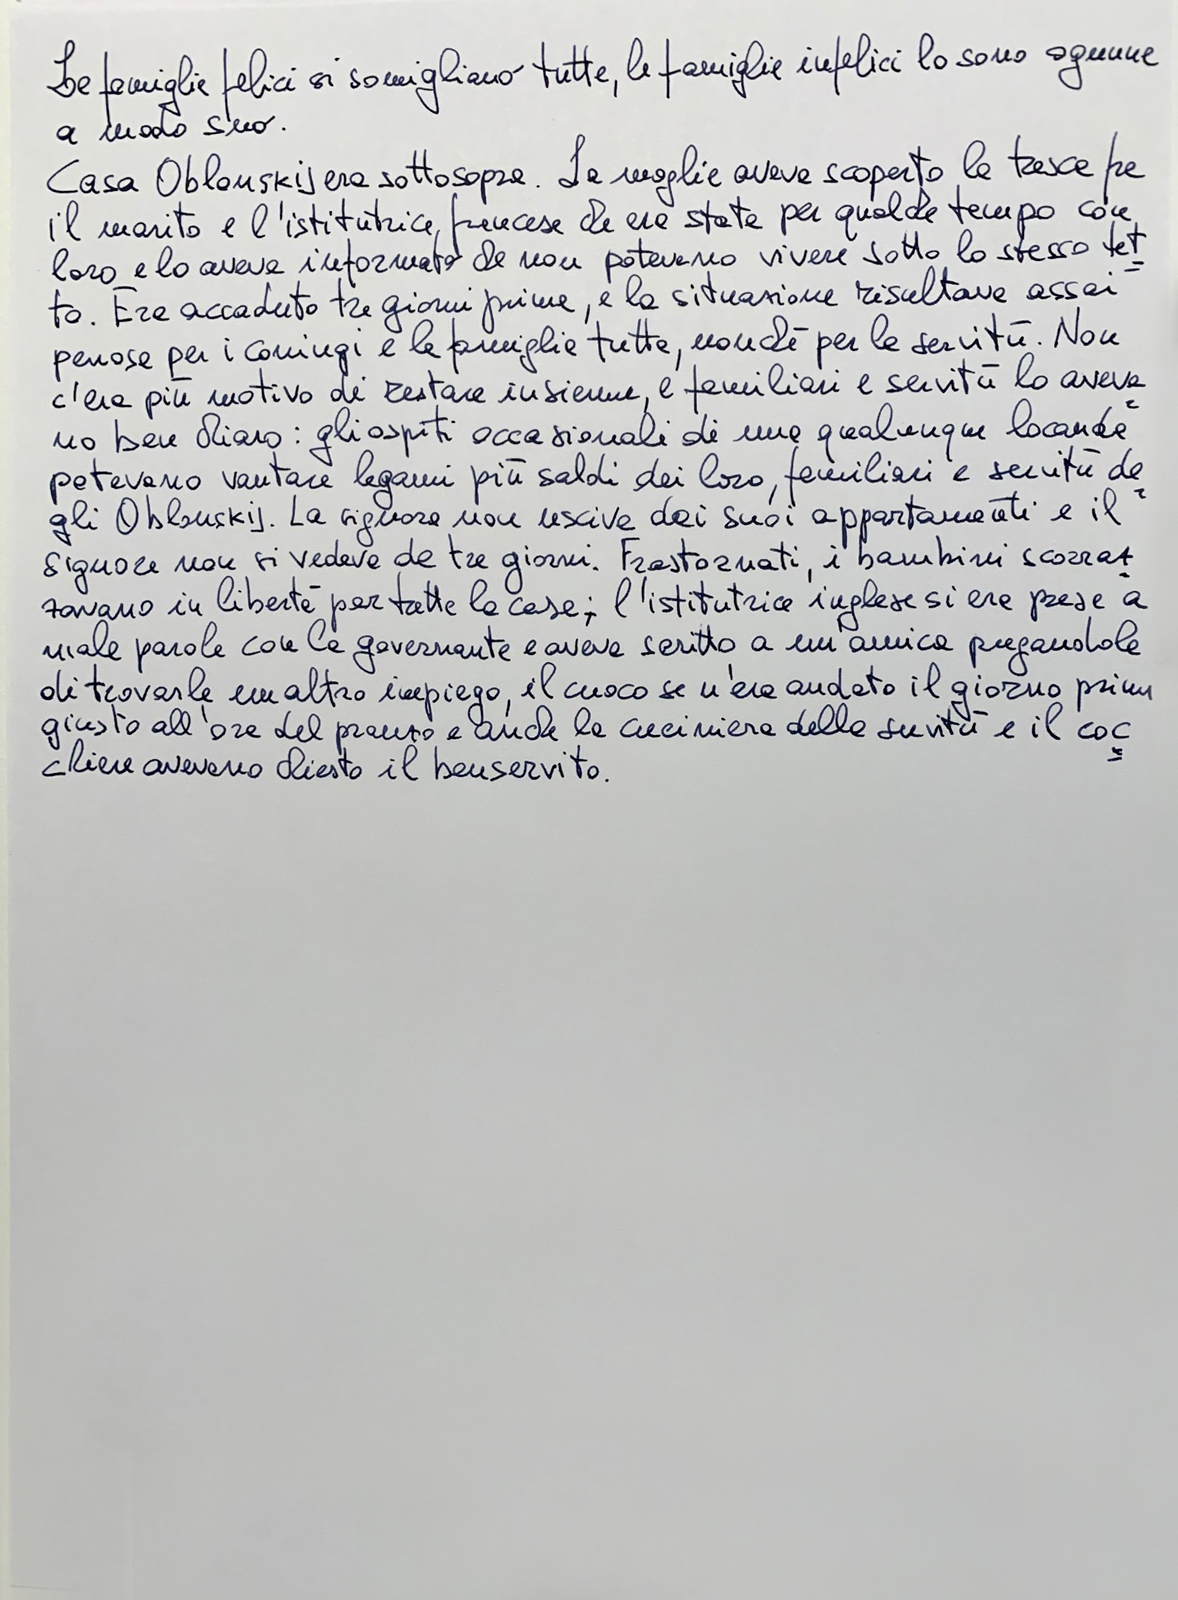 Le famiglie felici si somigliano tutte, le famiglie infelici lo sono ognuna
a modo suo.
Casa Oblonskij era sottosopra. La moglie aveva scoperto la tresca fra
il marito e l'istitutrice francese che era stata per qualche tempo con
loro e lo aveva informato che non potevano vivere sotto lo stesso tet
to. Era accaduto tre giorni prima, e la situazione risultava assai
penosa per i coniugi e la famiglia tutta, nonché per la servitù. Non
c'era più motivo di restare insieme, e familiari e servitù lo aveva
no ben chiaro: gli ospiti occasionali di una qualunque locanda
potevano vantare legami più saldi dei loro, familiari e servitù de
gli Oblonskij. La signora non usciva dai suoi appartamenti e il
signore non si vedeva da tre giorni. Frastornati, i bambini scorraz
zavano in libertà per tutta la casa; l'istitutrice inglese si era presa a
male parole con la governante e aveva scritto a un'amica pregandola
di trovarle un altro impiego, il cuoco se n'era andato il giorno prima
giusto all'ora del pranzo e anche la cuciniera della servitù e il coc
chiere avevano chiesto il benservito.